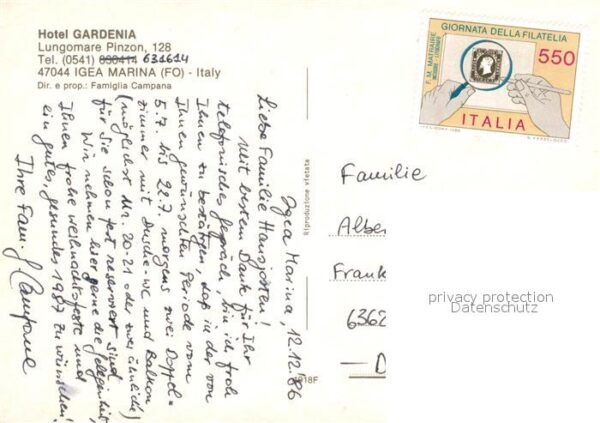 Hotel GARDENIA
Lungomare Pinzon, 128
Tel. (0541) 630414 631614
47044 IGEA MARINA (FO) - Italy
Dir. e prop.: Famiglia Campana
Igea Marina 12.12.86
Liebe Familie Hansjosten!
Mit bestem Dank für Ihr
telefonisches Gespräch, bin ich froh
Ihnen zu bestätigen, daß in der von
Ihnen gewünschten Periode vom
5.7. bis 22.7. morgens zwei Doppel-
zimmer mit Dusche-WC und Balkon
(möglichst Nr. 20-21 oder zwei ähnliche)
für Sie schon fest reserviert sind.
Wir nehmen hier gerne die Gelegenheit
Ihnen frohe Weihnachtsfeste und
ein gutes, gesundes 1987 zu wünschen!
Ihre Fam. Campana
Riproduzione vietata
1918F
GIORNATA DELLA FILATELIA
F. M. MATRAIRE
550
ITALIA
Familie
Alber
Frank
6362
D
privacy protection
Datenschutz